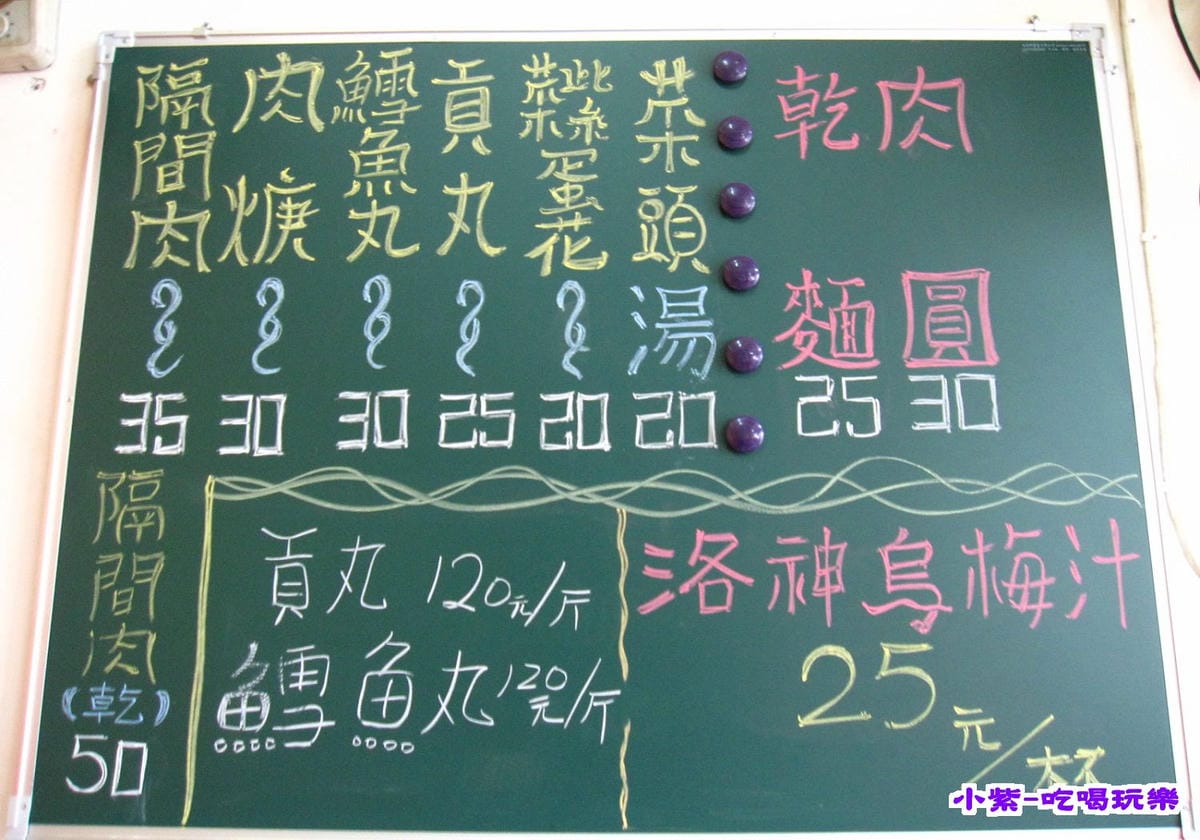 肉圓 30
乾麵 25
菜頭湯 20
紫菜蛋花 20
貢丸 25
鱈魚丸 30
肉焿 30
隔間肉 35
隔間肉(乾) 50
貢丸 120元/斤
鱈魚丸 120元/斤
洛神烏梅汁
25元/杯
小紫-吃喝玩樂